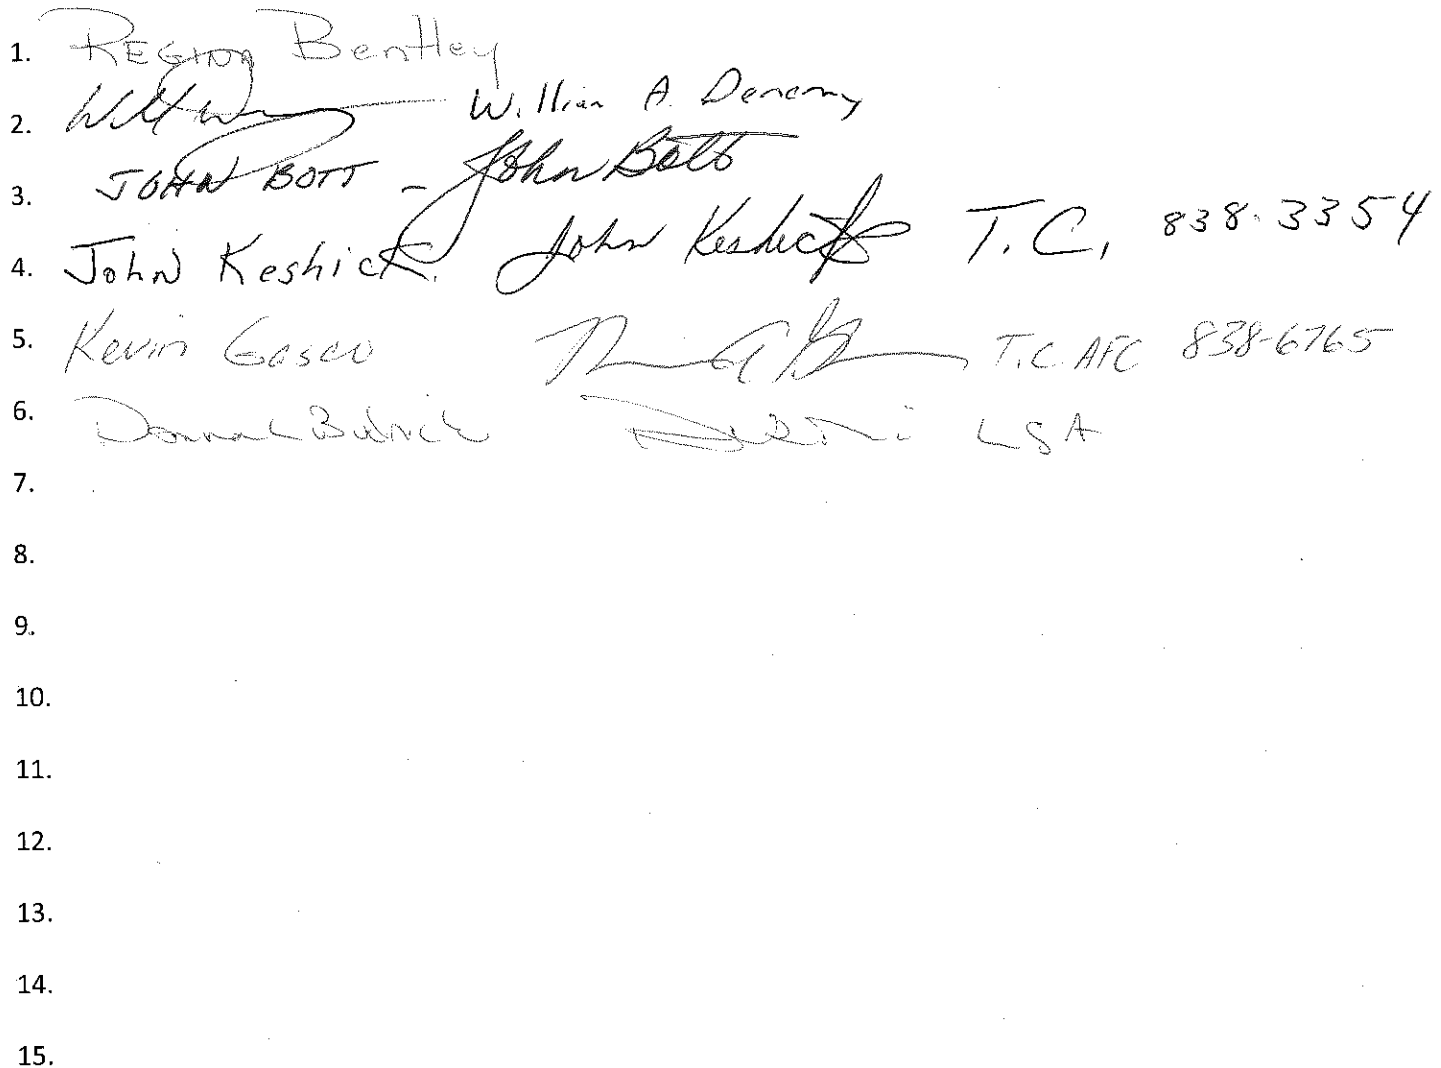 1. REGINA Bentley
2. William A. Denemy
3. JOHN BOTT - John Bott
4. John Keshick. John Keshick T.C. 838-3354
5. Kevin Gasco T.C. AFC 838-6765
6. Donna L Budnick LSA
7.
8.
9.
10.
11.
12.
13.
14.
15.